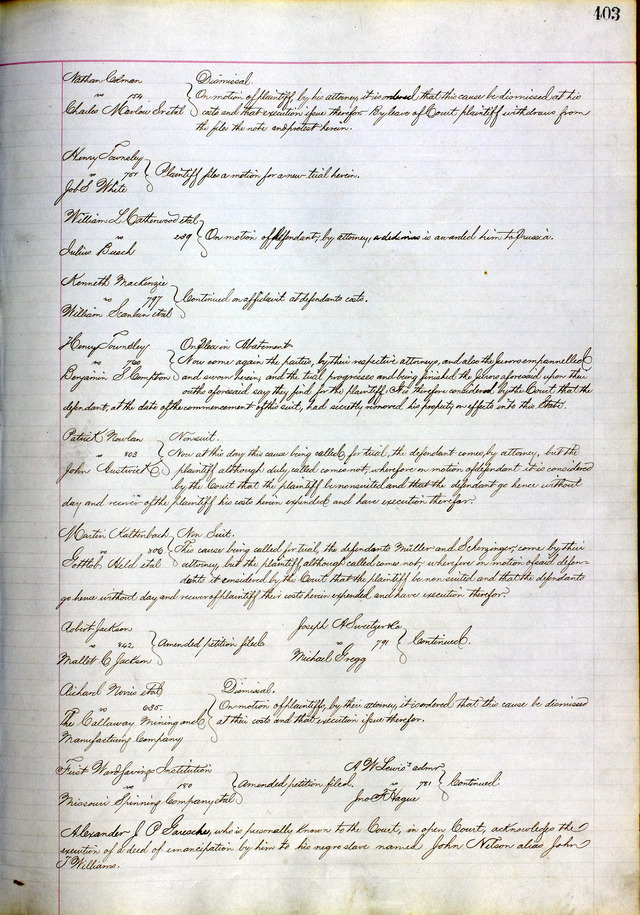 403
Nathan Colman
vs 154
Charles Marlow Sr et al
Dismissal.
On motion of plaintiff, by his attorney, it is ordered that this cause be dismissed at his
costs and that execution issue therefor. By leave of Court plaintiff withdraws from
the files the note and protest herein.
Henry Townsley
vs 751
Job S White
Plaintiff files a motion for a new trial herein.
William L Catherwood et al
vs 239
Julius Busch
On motion of defendant, by attorney, a dedimus is awarded him to Prussia.
Kenneth Mackenzie
vs 797
William Scanlan et al
Continued on affidavit at defendants costs.
Henry Townsley
vs 750
Benjamin F Compton
On Plea in Abatement
Now come again the parties, by their respective attorneys, and also the Jurors empannelled
and sworn herein, and the trial progresses and being finished the Jurors aforesaid upon their
oaths aforesaid say they find for the plaintiff. It is therefore considered by the Court that the
defendant, at the date of the commencement of this suit, had secretly removed his property or effects into this State.
Patrick Nowlan
vs 803
John Gustorick
Nonsuit.
Now at this day this cause being called, for trial, the defendant comes, by attorney, but the
plaintiff although duly called comes not, wherefore on motion of defendant it is considered
by the Court that the plaintiff be nonsuited and that the defendant go hence without
day and recover of the plaintiff his costs herein expended and have execution therefor.
Martin Kaltenbach
vs 806
Gottlob Held et al
Non Suit.
This cause being called for trial, the defendants Müller and Scherzinger, come by their
attorney, but the plaintiff although called comes not, wherefore on motion of said defen-
dants it considered by the Court that the plaintiff be non suited and that the defendants
go hence without day and recover of plaintiff their costs herein expended and have execution therefor.
Robert Jackson
vs 842
Mallet C Jackson
Amended petition filed
Joseph A Sweetzer & Co
vs 791
Michael Gregg
Continued.
Richard Norris et al
vs 635
The Callaway Mining and
Manufacturing Company
Dismissal.
On motion of plaintiffs, by their attorney, it is ordered that this cause be dismissed
at their costs and that execution issue therefor.
First Ward Savings Institution
vs 180
Missouri Spinning Company et al
Amended petition filed.
A W Lewis' admr
vs 781
Jno F Hague
Continued
Alexander J P Garesche, who is personally known to the Court, in open Court, acknowledges the
execution of a deed of emancipation by him to his negro slave named John Nelson alias John
T Williams.